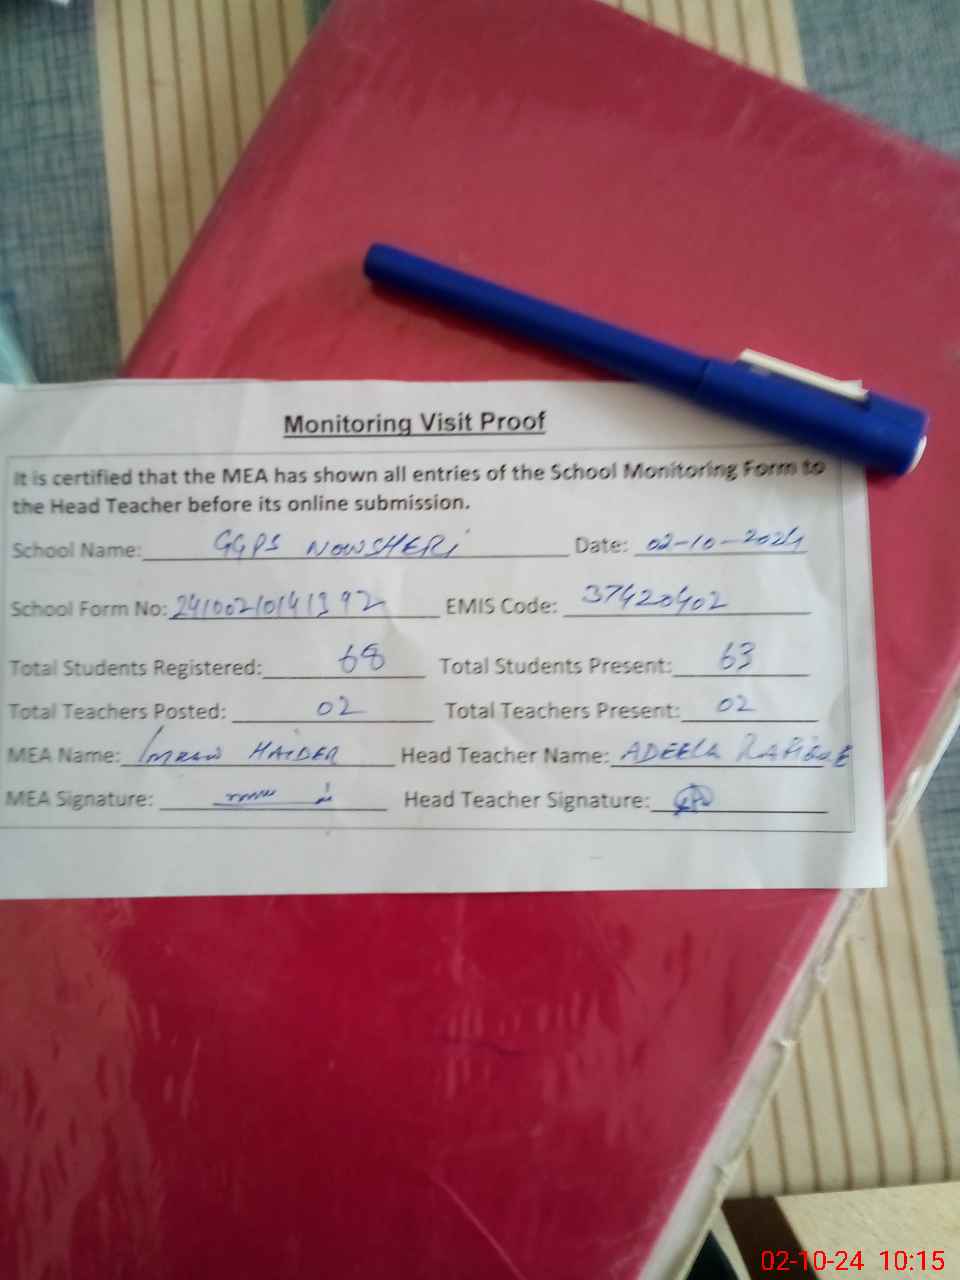 Monitoring Visit Proof
It is certified that the MEA has shown all entries of the School Monitoring Form to
the Head Teacher before its online submission.
School Name: GGPS NOWSHERi Date: 02-10-2024
School Form No: 241002101411392 EMIS Code: 37420402
Total Students Registered: 68 Total Students Present: 63
Total Teachers Posted: 02 Total Teachers Present: 02
MEA Name: IMRAN HAIDER Head Teacher Name: ADEELA RAFIQUE
MEA Signature: Head Teacher Signature:
02-10-24 10:15